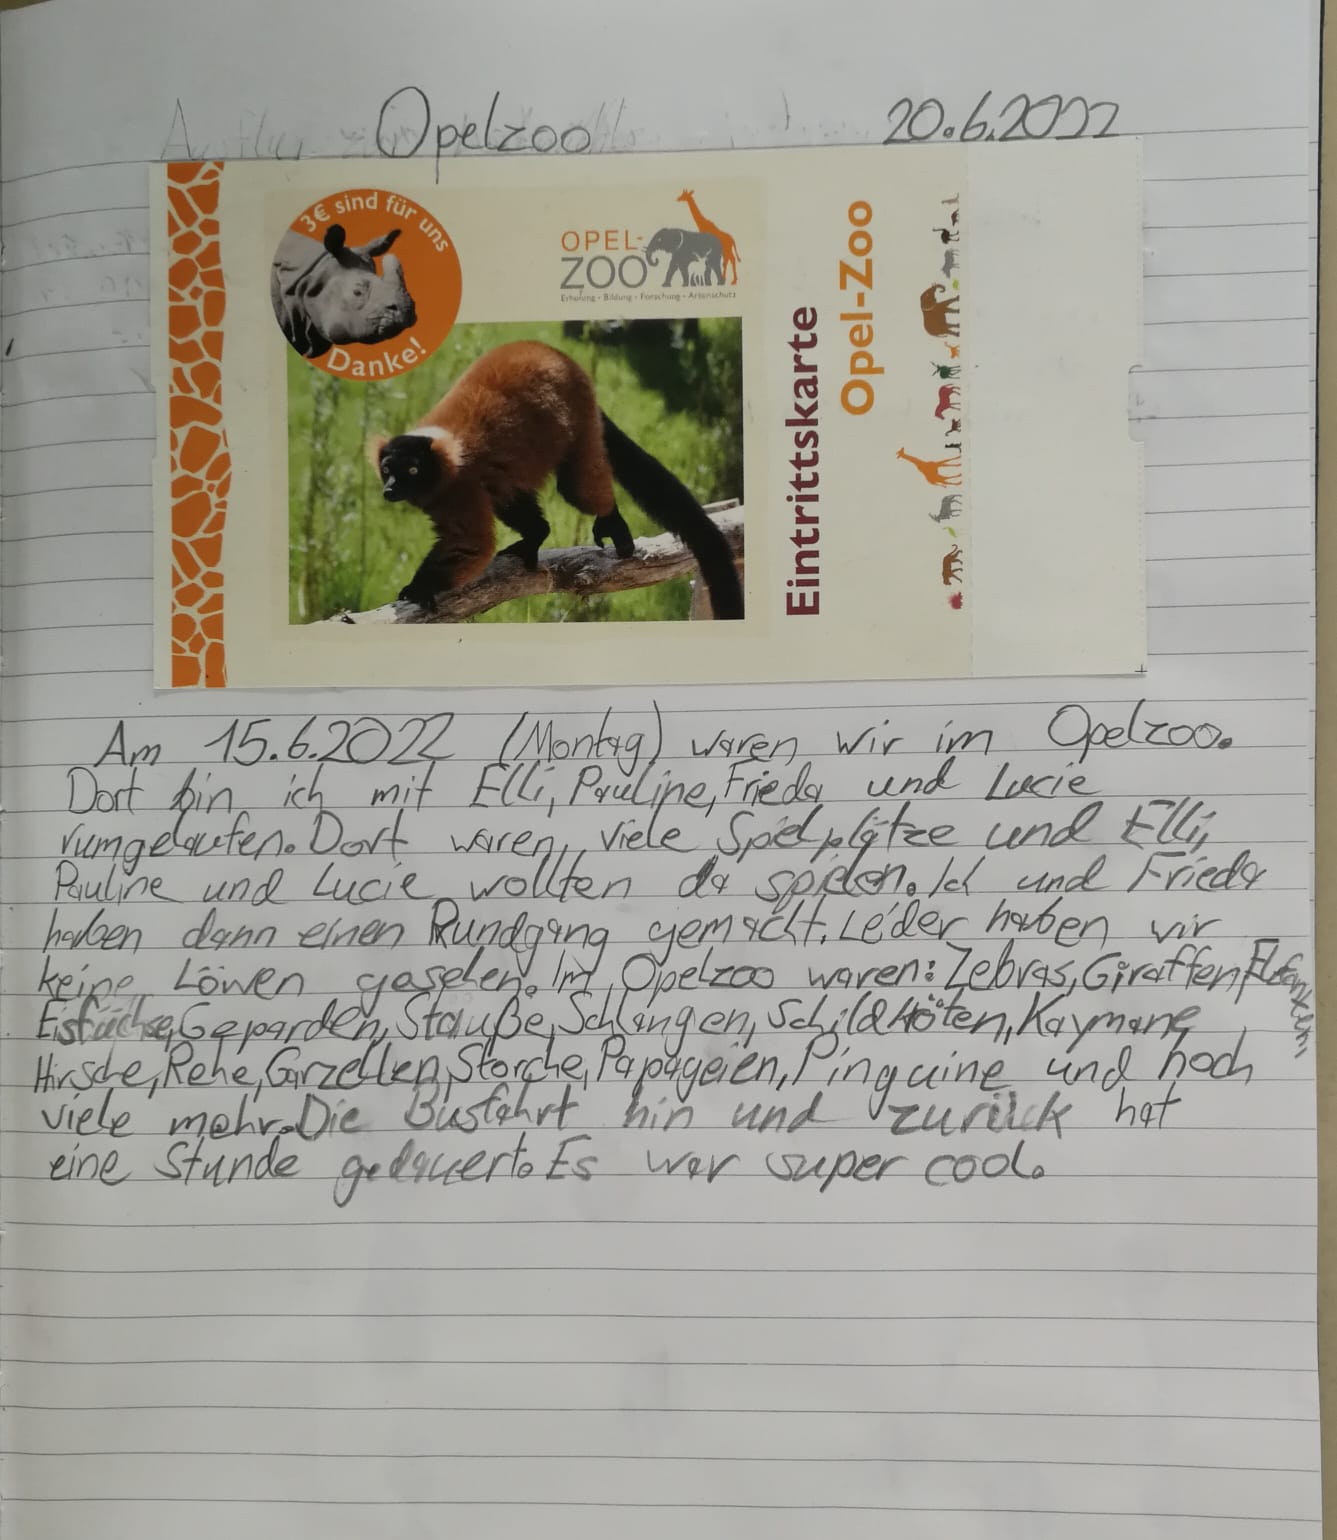 Opelzoo 20.6.2022
3€ sind für uns
Danke!
OPEL-
ZOO
Erholung • Bildung • Forschung • Artenschutz
Eintrittskarte
Opel-Zoo
Am 15.6.2022 (Montag) waren wir im Opelzoo.
Dort bin ich mit Elli, Pauline, Frieda und Lucie
rumgelaufen. Dort waren viele Spielplätze und Elli,
Pauline und Lucie wollten da spielen. Ich und Frieda
haben dann einen Rundgang gemacht. Leider haben wir
keine Löwen gesehen. Im Opelzoo waren: Zebras, Giraffen, Elefanten,
Eisfüchse, Geparden, Stauße, Schlangen, Schildkröten, Kaymane,
Hirsche, Rehe, Garzellen, Storche, Papageien, Pinguine und noch
viele mehr. Die Busfahrt hin und zurück hat
eine Stunde gedauert. Es war super cool.